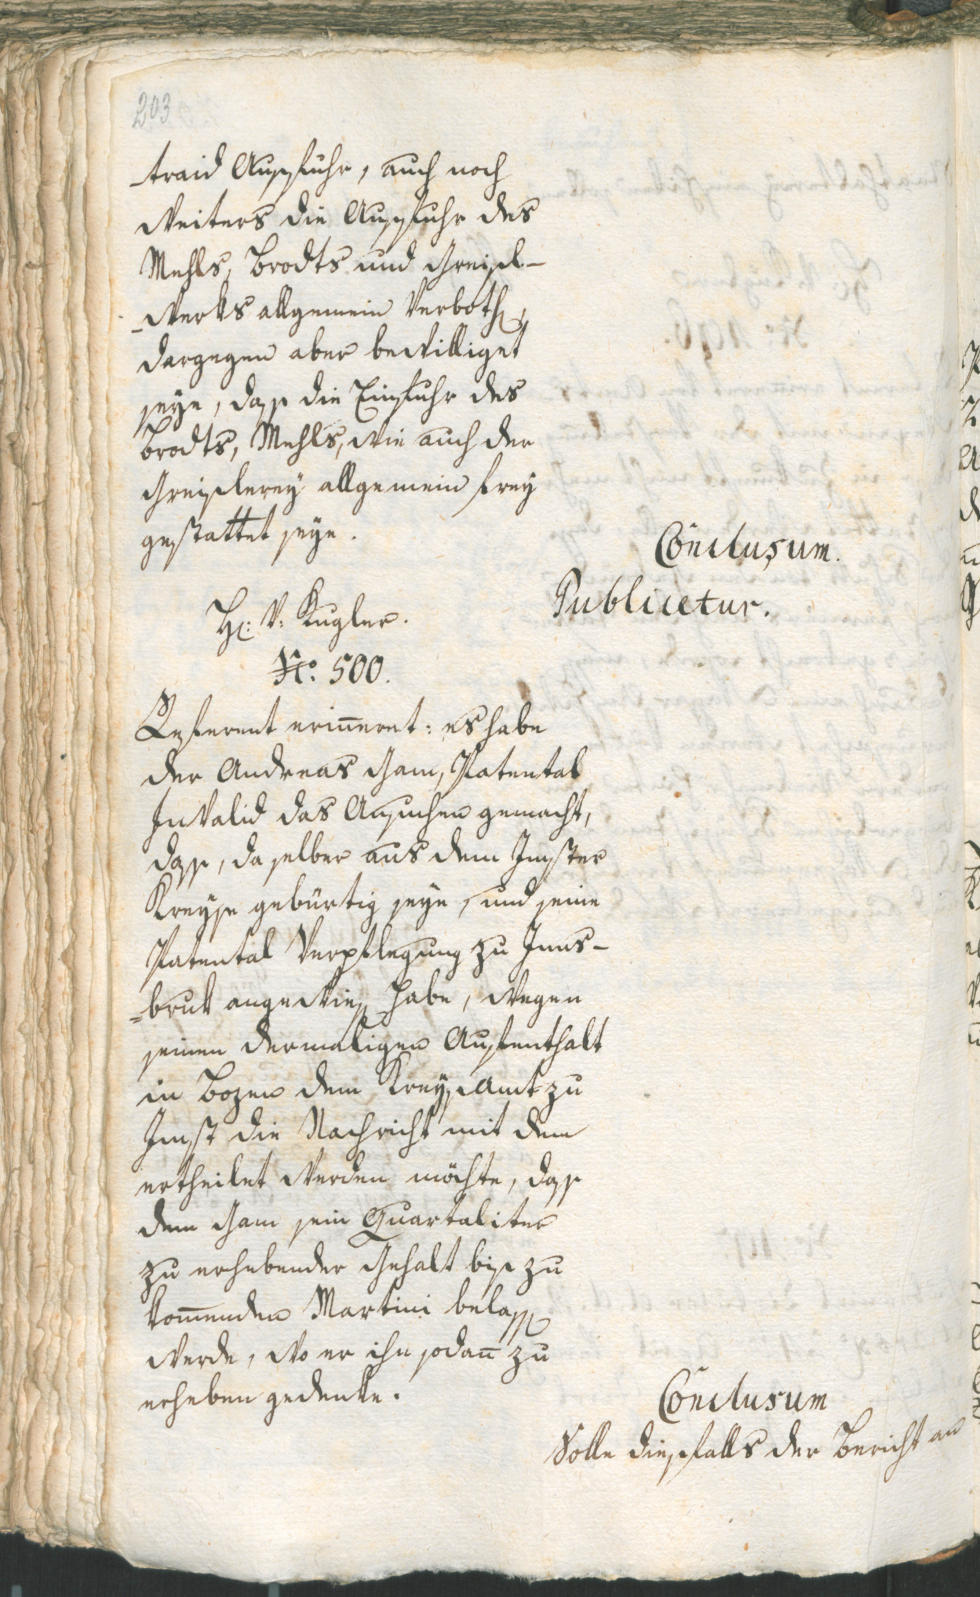 203
traid Ausfuhr, auch noch
weiters die Ausfuhr des
Mehls, Brodts und Greisl-
werks allgemein Verboth,
dargegen aber bewilliget
seÿe, daß die Einfuhr des
Brodts, Mehls, wie auch der
Greislereÿ allgemein freÿ
gestattet seÿe.
Conclusum.
Publicetur.
H: V: Kugler.
No: 500.
Referent erinneret: es habe
der Andreas Gam, Patental
Invalid das Ansuchen gemacht,
daß, da selber aus dem Imster
Kreyse gebürtig seÿe, und seine
Patental Verpflegung zu Inns-
bruk angewiesen habe, wegen
seinen dermaligen Aufenthalt
in Bozen dem Kreÿsamt zu
Imst die Nachricht mit dem
ertheilet werden möchte, daß
dem Gam sein Quartaliter
zu erhebender Gehalt biß zu
kom̅enden Martini belassen
werde, wo er ihn sodan̅ zu
erheben gedenke.
Conclusum
Solle dießfalls der Bericht an